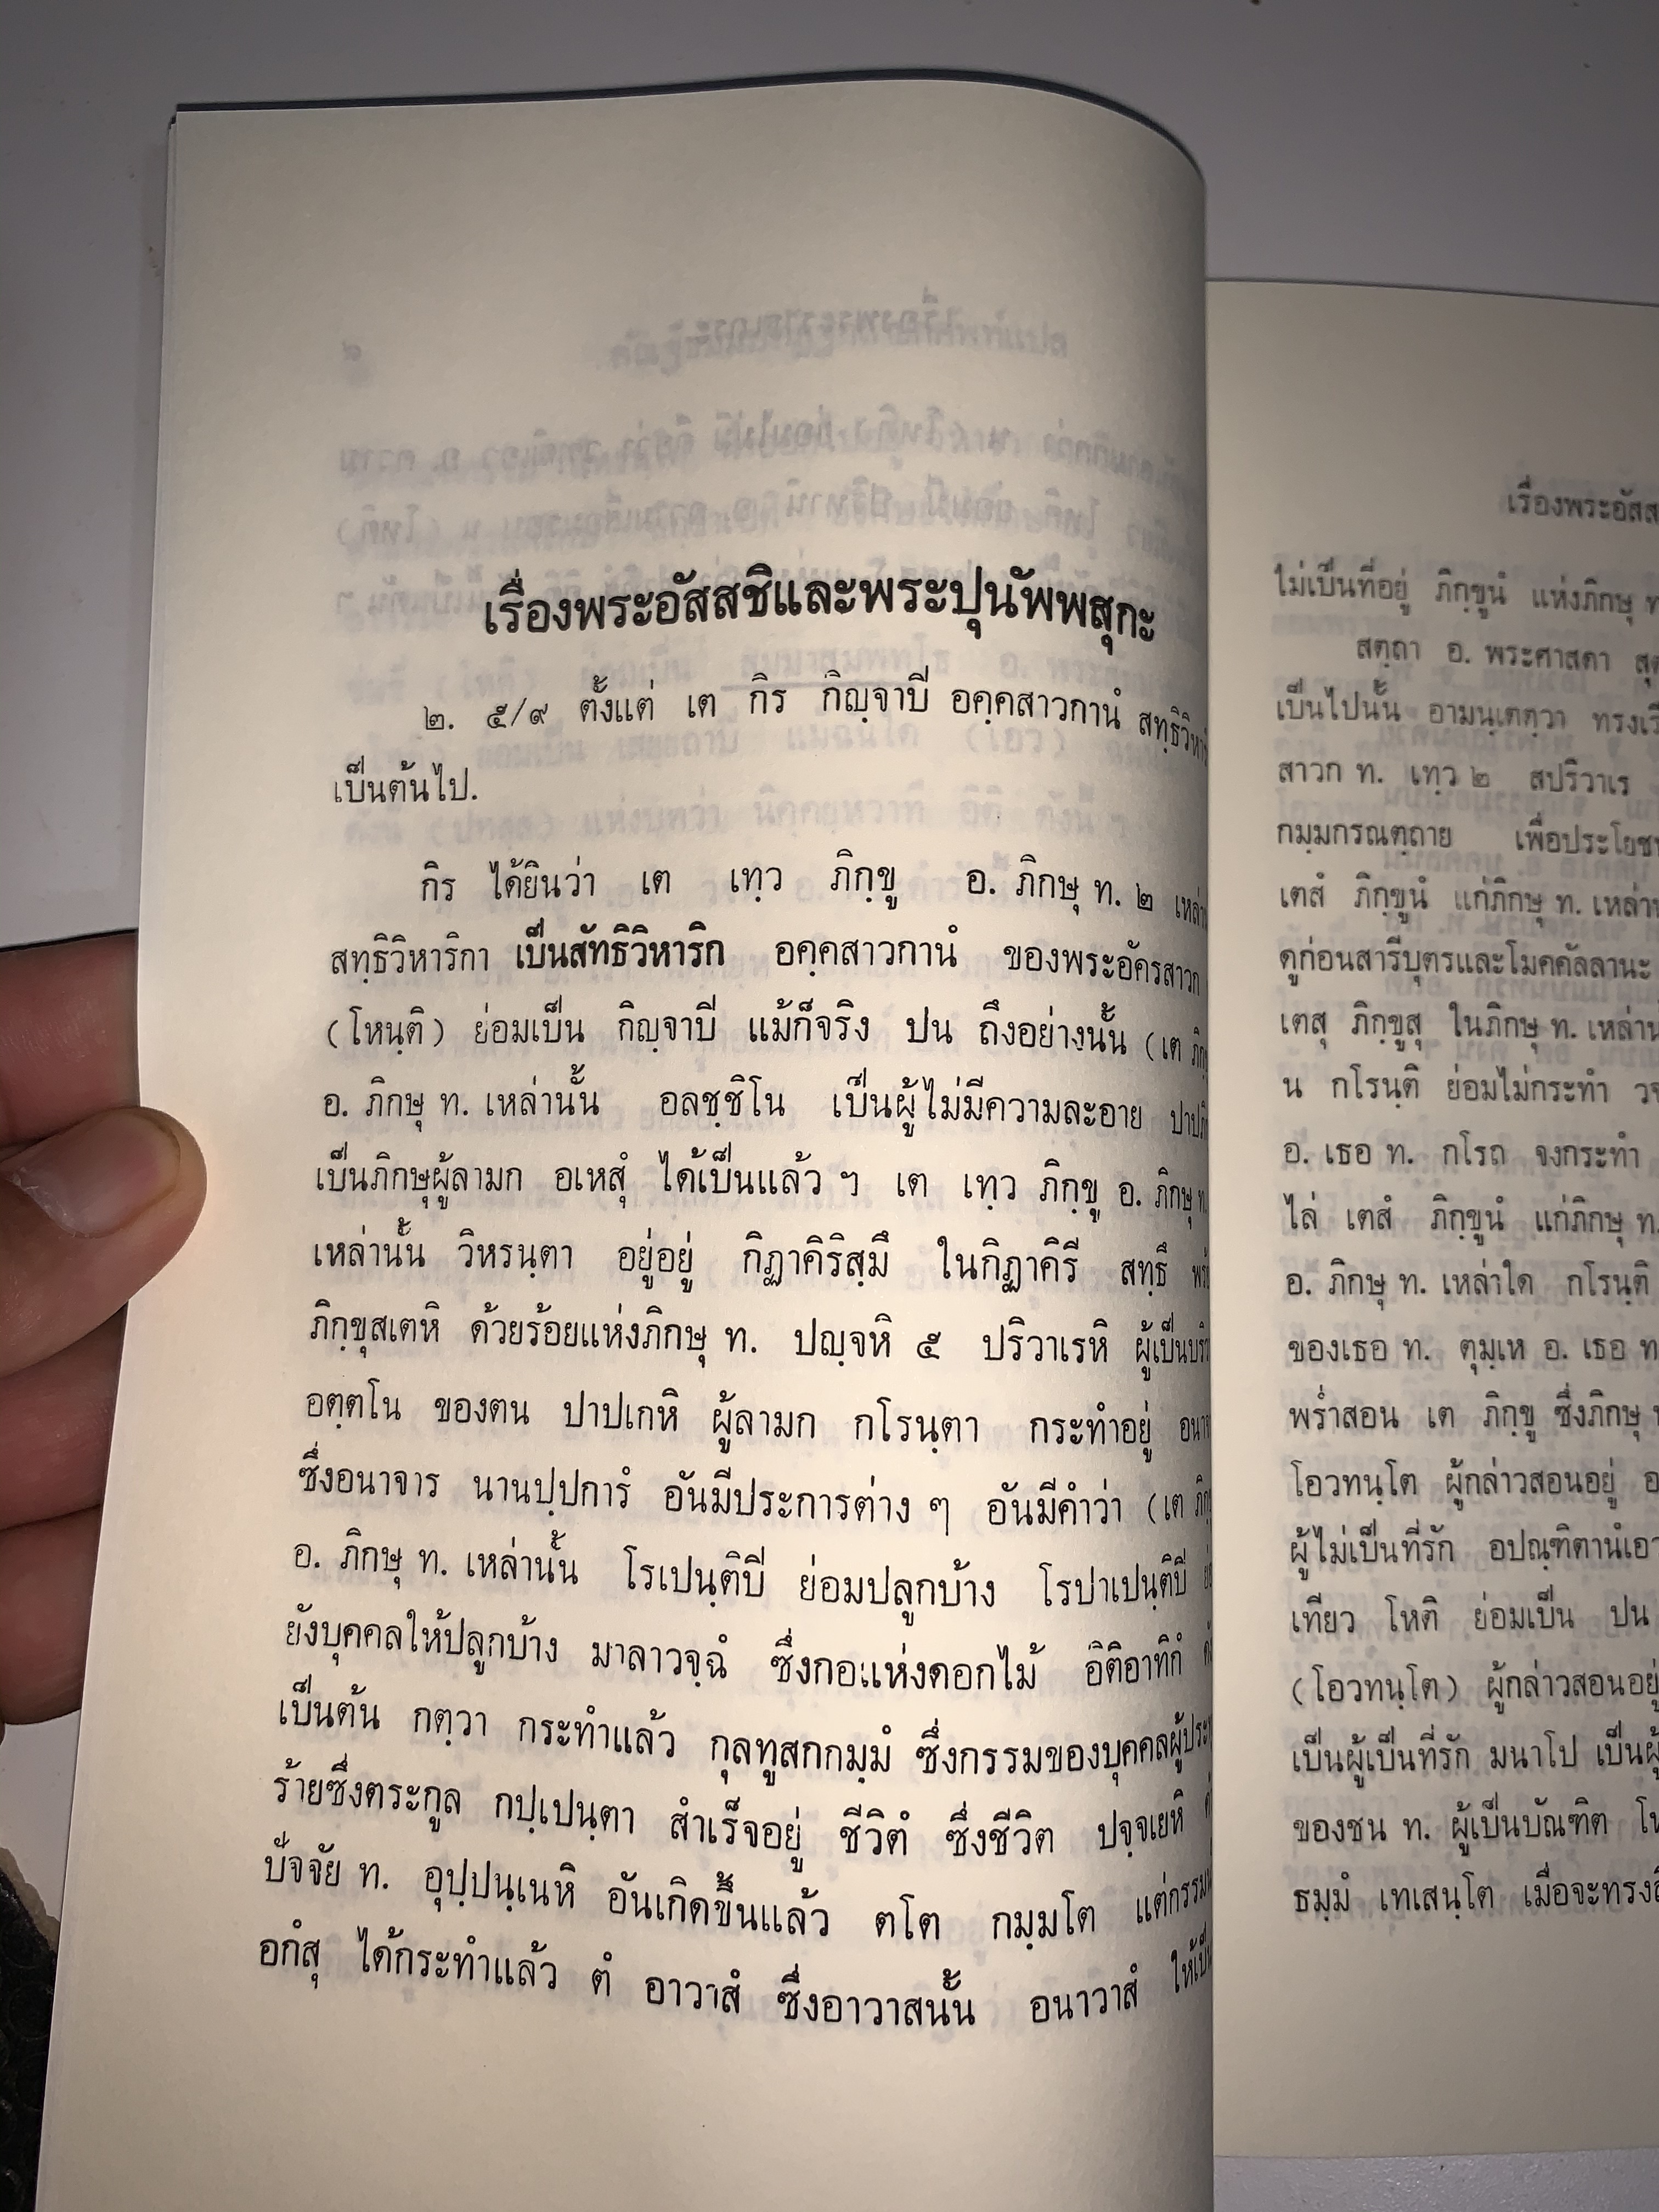 เรื่องพระอัสสชิและพระปุนัพพสุกะ
๒. ๕/๙ ตั้งแต่ เต กิร กิญฺจาปี อคฺคสาวกานํ
เป็นต้นไป.
กิร ได้ยินว่า เต เทฺว ภิกฺขู อ. ภิกษุ ท. ๒
สทฺธิวิหาริกา เป็นสัทธิวิหาริก อคฺคสาวกานํ ของพระอัครสาวก
(โหนฺติ) ย่อมเป็น กิญฺจาปี แม้ก็จริง ปน ถึงอย่างนั้น (เต
อ. ภิกษุ ท. เหล่านั้น อลชฺชิโน เป็นผู้ไม่มีความละอาย
เป็นภิกษุผู้ลามก อเหสุํ ได้เป็นแล้ว ฯ เต เทฺว ภิกฺขู อ. ภิกษุ
เหล่านั้น วิหรนฺตา อยู่อยู่ กิฏาคิริสฺมึ ในกิฏาคิรี สทฺธึ
ภิกฺขุสเตหิ ด้วยร้อยแห่งภิกษุ ท. ปญฺจหิ ๕ ปริวาเรหิ
อตฺตโน ของตน ปาปเกหิ ผู้ลามก กโรนฺตา กระทำอยู่
ซึ่งอนาจาร นานปฺปการํ อันมีประการต่าง ๆ อันมีคำว่า (เต
อ. ภิกษุ ท. เหล่านั้น โรเปนฺติปี ย่อมปลูกบ้าง โรปาเปนฺติปี
ยังบุคคลให้ปลูกบ้าง มาลาวจฺฉํ ซึ่งกอแห่งดอกไม้ อิติอาทิกํ
เป็นต้น กตฺวา กระทำแล้ว กุลทูสกกมฺมํ ซึ่งกรรมของบุคคล
ร้ายซึ่งตระกูล กปฺเปนฺตา สำเร็จอยู่ ชีวิตํ ซึ่งชีวิต ปจฺจเยหิ
ปัจจัย ท. อุปฺปนฺเนหิ อันเกิดขึ้นแล้ว ตโต กมฺมโต
อกํสุ ได้กระทำแล้ว ตํ อาวาสํ ซึ่งอาวาสนั้น อนาวาสํ
ไม่เป็นที่อยู่ ภิกฺขูนํ แห่งภิกษุ
สตฺถา อ. พระศาสดา
เป็นไปนั้น อามนฺเตตฺวา
สาวก ท. เทฺว ๒ สปริวาเร
กมฺมกรณตฺถาย
เตสํ ภิกฺขูนํ แก่ภิกษุ ท.
ดูก่อนสารีบุตรและโมคคัลลานะ
เตสุ ภิกฺขูสุ ในภิกษุ ท.
น กโรนฺติ ย่อมไม่กระทำ
อ. เธอ ท. กโรถ จงกระทำ
ไล่ เตสํ ภิกฺขูนํ แก่ภิกษุ
อ. ภิกษุ ท. เหล่าใด กโรนฺติ
ของเธอ ท. ตุมฺเห อ. เธอ
พร่ำสอน เต ภิกฺขู ซึ่งภิกษุ
โอวทนฺโต ผู้กล่าวสอนอยู่
ผู้ไม่เป็นที่รัก
เทียว โหติ ย่อมเป็น ปน
(โอวทนฺโต) ผู้กล่าวสอนอยู่
เป็นผู้เป็นที่รัก มนาโป
ของชน ท. ผู้เป็นบัณฑิต
ธมฺมํ เทเสนฺโต